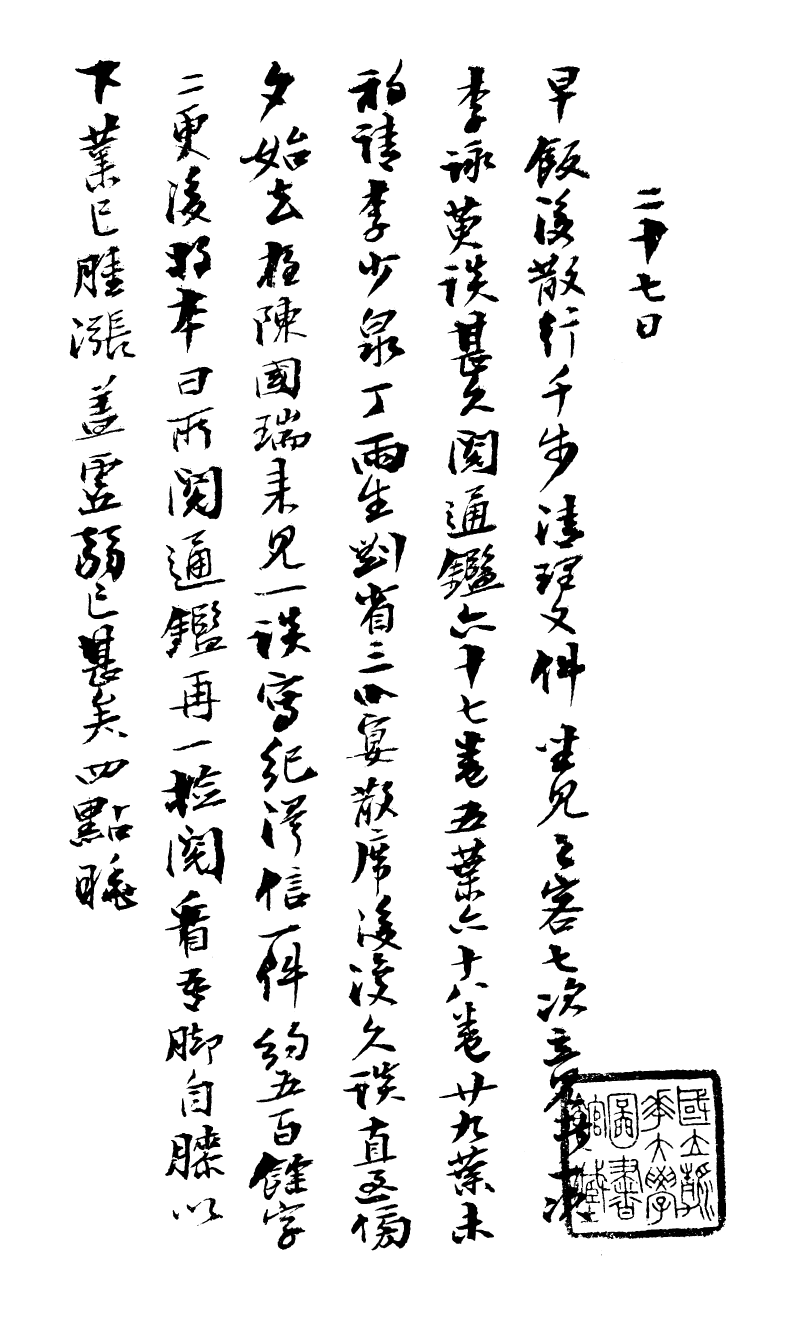 二十七日
早飯後散行千步清理文件坐見之客七次立見者二次
李詠黄談甚久閱通鑑六十七卷五葉六十八卷廿九葉未
初請李少泉丁雨生劉省三四宴散席後渡久談直至傍
夕始去拒陳國瑞来見一談寫紀澤信一件約五百餘字
二更後將本日所閱通鑑再一檢閱看吾脚自膝以
下業已腫漲盖虚弱已甚矣四點睡